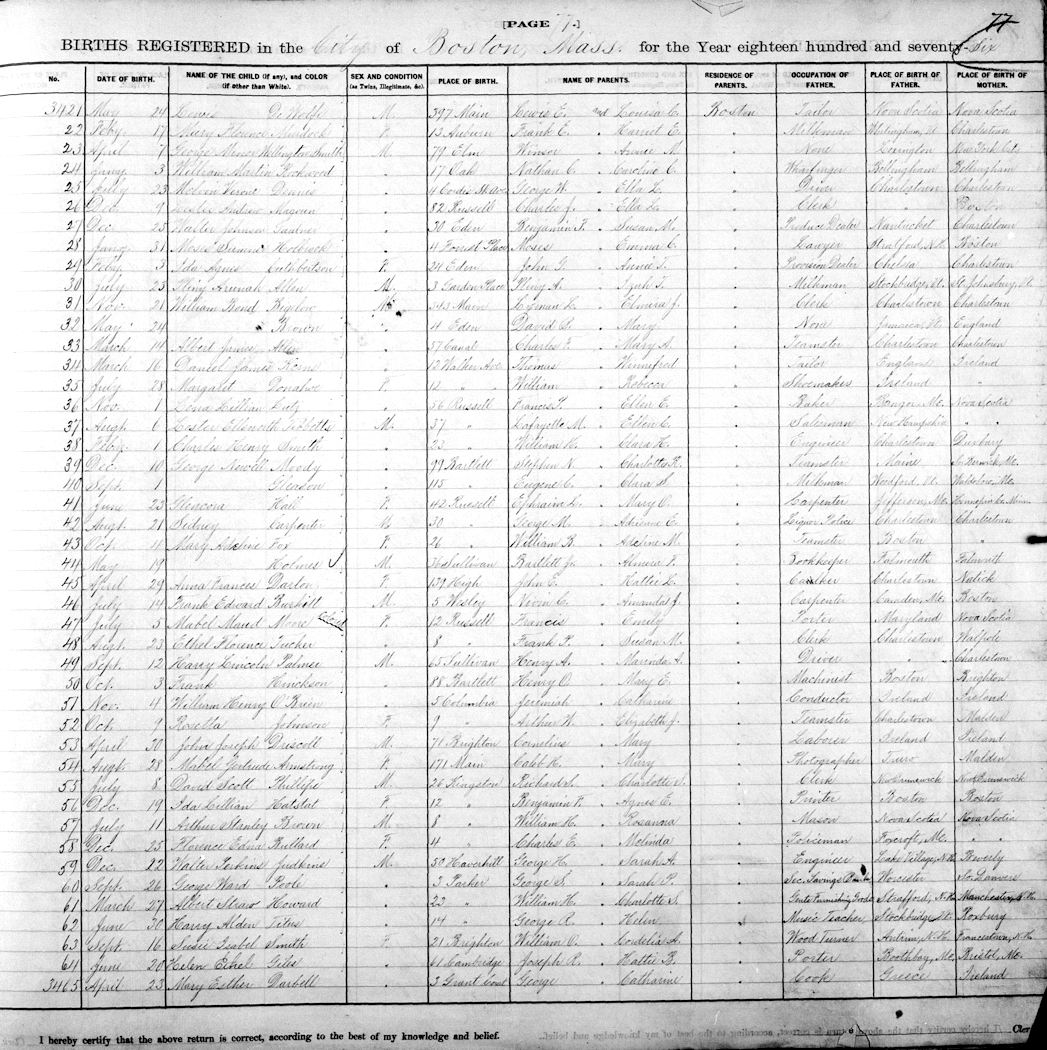 [PAGE 77.]
77
BIRTHS REGISTERED in the City of Boston, Mass. for the Year eighteen hundred and seventy-six
No. DATE OF BIRTH. NAME OF THE CHILD (if any), and COLOR (if other than White). SEX AND CONDITION (as Twins, Illegitimate, &c.) PLACE OF BIRTH. NAME OF PARENTS. RESIDENCE OF PARENTS. OCCUPATION OF FATHER. PLACE OF BIRTH OF FATHER. PLACE OF BIRTH OF MOTHER.
3421 May 24 De Wolfe M. 397 Main Lewis E. and Louisa C. Boston Tailor Nova Scotia Nova Scotia
22 Feby. 17 Florence Murdock F. 12 Auburn Frank E. " Harriet E. " Milkman Charlestown
23 April 7 George Minor Wellington Smith M. 79 Elm Winsor " Annie M. " None Lexington New York City
24 Jany. 3 William Martin Rockwood " 17 Oak Nathan C. " Caroline C. " Wharfinger Bellingham Bellingham
25 July 23 Melvin Dennis " 4 George W. " Ella L. " Driver Charlestown Charlestown
26 Dec. 9 Leslie Andrew " 82 Russell Charles J. " Ella L. " Clerk " Boston
27 Dec. 25 Walter Johnson Gardner " 30 Eden Benjamin F. " Susan M. " Produce Dealer Nantucket Charlestown
28 Jany. 31 Moses Holbrook " 4 Forest Place Moses " Emma C. " Lawyer Stratford, N.H. Boston
29 Feby. 3 Ida Agnes Culbertson F. 24 Eden John G. " Annie T. " Provision Dealer Chelsea Charlestown
30 July 23 Pliny Allen M. 3 Garden Place Pliny A. " " Milkman Stockbridge, Vt. St. Johnsbury, Vt.
31 Nov. 21 William Bond Bigelow M. 343 Main Lyman L. " Elmira J. " Clerk Charlestown Charlestown
32 May 24 Brown " 4 Eden David S. " Mary " None Jamaica England
33 March 14 Albert James Allen " 57 Canal Charles F. " Mary A. " Teamster Charlestown Charlestown
34 March 16 Daniel James " 12 Walker Ave Thomas " Winnifred " Tailor England Ireland
35 July 28 Margaret Donahoe F. 12 " " William " Rebecca " Shoemaker Ireland "
36 Nov. 1 Lena Lillian " 56 Russell Francis " Ellen E. " Baker Bangor, Me. Nova Scotia
37 Augt. 6 Lester Ellsworth Tibbetts M. 37 " Lafayette M. " Ellen C. " Salesman New Hampshire "
38 Feby. 1 Charles Henry Smith " 23 " William H. " Clara H. " Engineer Charlestown Duxbury
39 Dec. 10 George Newell Moody " 99 Bartlett Stephen N. " Charlotte R. " Teamster Maine So. Berwick, Me.
40 Sept. 1 Gleason " 115 " Eugene C. " Clara S. " Milkman Woodford, Vt. Waldoboro, Me.
41 June 23 Glencora Hall F. 42 Russell Ephraim L. " Mary O. " Carpenter Jefferson, Me.
42 Augt. 21 Sidney Carpenter M. 30 " George M. " Adriane E. " Liquor Police Charlestown Charlestown
43 Oct. 4 Mary Adeline Fox F. 26 " William B. " Adeline M. " Teamster Boston "
44 May 19 Holmes M. 36 Sullivan Bartlett Jr. " Almira F. " Bookkeeper Falmouth Falmouth
45 April 29 Anna Frances F. 139 High John E. " Hattie L. " Caulker Charlestown Natick
46 July 14 Frank Edward Burkitt M. 5 Wesley " Amanda J. " Carpenter Camden, Me. Boston
47 July 5 Mabel Maud Moore Colored F. 12 Russell Francis " Emily " Porter Maryland Nova Scotia
48 Augt. 23 Ethel Florence Tucker " 8 " Frank F. " Susan M. " Clerk Charlestown Walpole
49 Sept. 12 Harry Lincoln Palmer M. 65 Sullivan Henry A. " Marinda A. " Driver " Charlestown
50 Oct. 3 Frank Hinckson " 88 Bartlett Henry O. " Mary E. " Machinist Boston Brighton
51 Nov. 4 William Henry O'Brien " 5 Columbia Jeremiah " Catharine " Conductor Ireland Ireland
52 Oct. 9 Rosella Johnson F. 9 " Arthur W. " Elizabeth J. " Teamster Charlestown Malden
53 April 30 John Joseph Driscoll M. 71 Brighton Cornelius " Mary " Laborer Ireland Ireland
54 Augt. 28 Mabel Gertrude Armstrong F. 171 Main Caleb K. " Mary " Photographer Truro Malden
55 July 8 David Scott Phillips M. 26 Kingston Richard S. " Charlotte S. " Clerk New Brunswick New Brunswick
56 Dec. 19 Ida Lillian Hatstat F. 12 " Benjamin F. " Agnes E. " Printer Boston Boston
57 July 11 Arthur Stanley Brown M. 8 " William H. " Rosanna " Mason Nova Scotia Nova Scotia
58 Dec. 25 Florence Edna Bullard F. 4 " Charles E. " Melinda " Policeman Foxcroft, Me. "
59 Dec. 22 Walter Perkins Judkins M. 50 Haverhill George H. " Sarah A. " Engineer Lake Village, N.H. Beverly
60 Sept. 26 George Ward Poole " 3 Parker George S. " Sarah P. " Sec. Savings Bank Worcester So. Danvers
61 March 27 Albert Straw Howard " 23 " William H. " Charlotte S. " Gents Furnishing Goods Strafford, N.H. Manchester, N.H.
62 June 30 Harry Alden Titus " 14 " George R. " Helen " Music Teacher Stockbridge, Vt. Roxbury
63 Sept. 16 Susie Isabel Smith F. 21 Brighton William O. " Cordelia A. " Wood Turner Antrim, N.H. Francestown, N.H.
64 June 20 Helen Ethel Giles " 61 Cambridge Joseph R. " Hattie B. " Porter Boothbay, Me. Bristol, Me.
3465 April 23 Mary Esther Darbell " 3 Grant Court George " Catharine " Cook Greece Ireland
I hereby certify that the above return is correct, according to the best of my knowledge and belief.
Cler